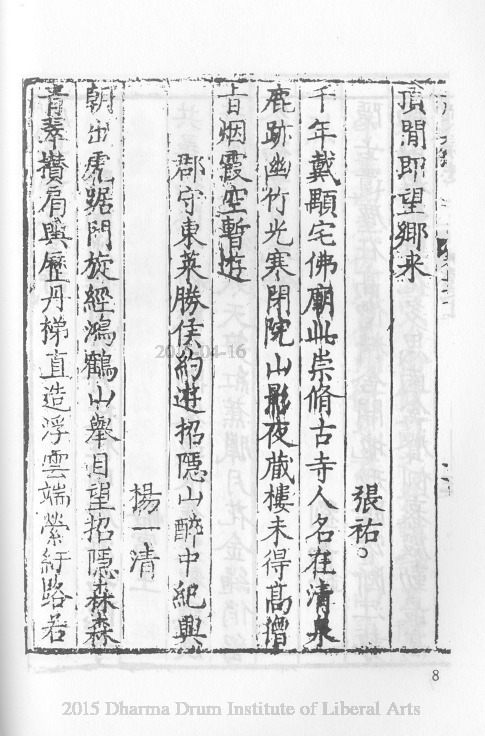 頂閒即望鄉来
張祐。
千年戴顒宅佛廟此崇脩古寺人名在清泉
鹿跡幽竹光寒閉院山影夜藏樓未得髙僧
旨烟霞空暫遊
郡守東萊勝侯約遊招隱山醉中紀興
楊一清
朝出虎踞門旋經鴻鶴山舉目望招隱森森
青翠攢肩輿歷丹梯直造浮雲端縈紆路若
8
2015 Dharma Drum Institute of Liberal Arts